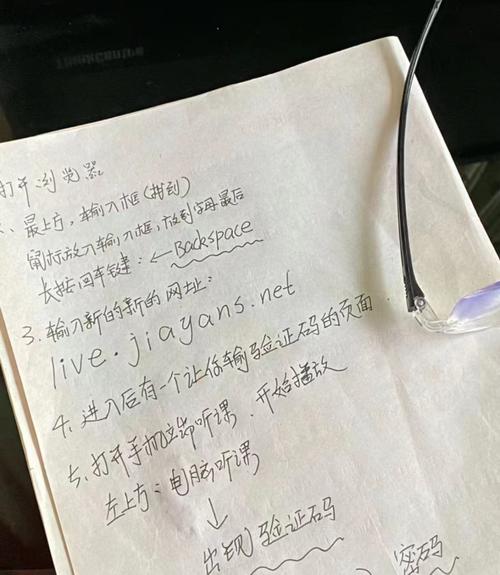 ThinkCentre
打开浏览器
、最上方，输入框（拼到）
鼠标放入输入框，放到字母最后
长按回车键：←Backspace
3、输入新的新的网址：
live.jiayans.net
4、进入后有一个让你输验证码的页面．
5、打开手机立师听课．开始播放
左上方：电脑听课
↓
出现验证码
密码